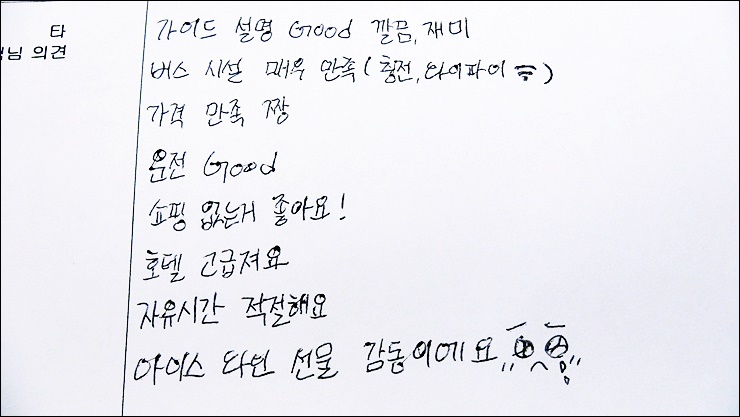 타
님 의견
가이드 설명 Good 깔끔, 재미
버스 시설 매우 만족 (충전, 와이파이)
가격 만족 짱
운전 Good
쇼핑 없는거 좋아요!
호텔 고급져요
자유시간 적절해요
아이스 와인 선물 감동이에요